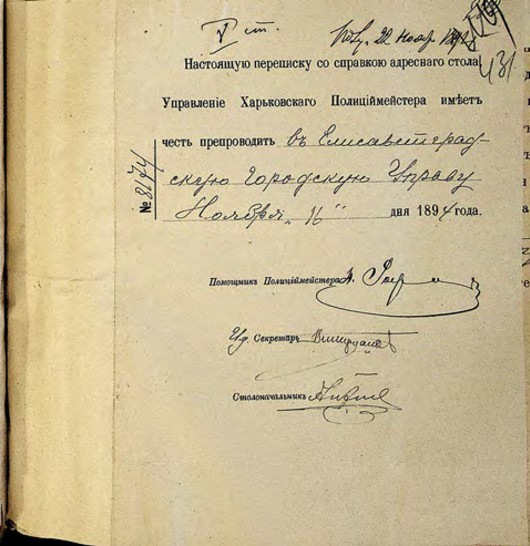 V ст.
22 Нояб
431
Настоящую переписку со справкою адреснаго стола
Управленіе Харьковскаго Полиціймейстера имѣетъ
честь препроводить въ Елисаветград-
скую Городскую Управу
Ноября „16" дня 1894 года.
№ 8174
Помощникъ Полиціймейстера
И.д. Секретарь
Столоначальникъ